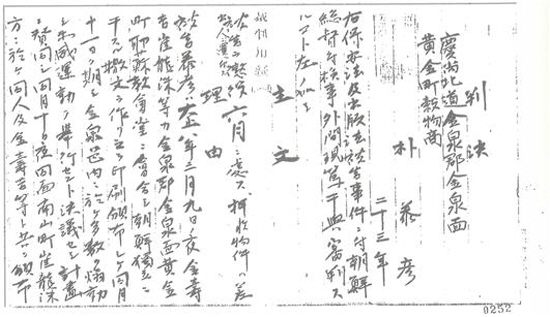 判決
慶尚北道金泉郡金泉面
黄金町穀物商
朴
二十三年
右保安法及出版法違反事件ニ付朝鮮
総督府検事 干與審判スル
コト左ノ如シ
主文
被告ヲ懲役六月ニ處ス押収物件ハ差
出人
理由
被告 大正八年三月九日夜金壽
崔龍洙等カ金泉郡金泉面黄金
町耶蘇教會堂ニ會合シ朝鮮獨立ニ
干スル檄文ヲ作リ之ヲ印刷頒布シテ同月
十一日ヲ期シ金泉邑内ニ於テ多数ヲ煽動
シ 運動ヲ擧行セント決議セシ計畫
ニ賛同シ同月十日夜同面南山町崔龍洙
方ニ於テ同人及金壽 等ト共ニ頒布
0252